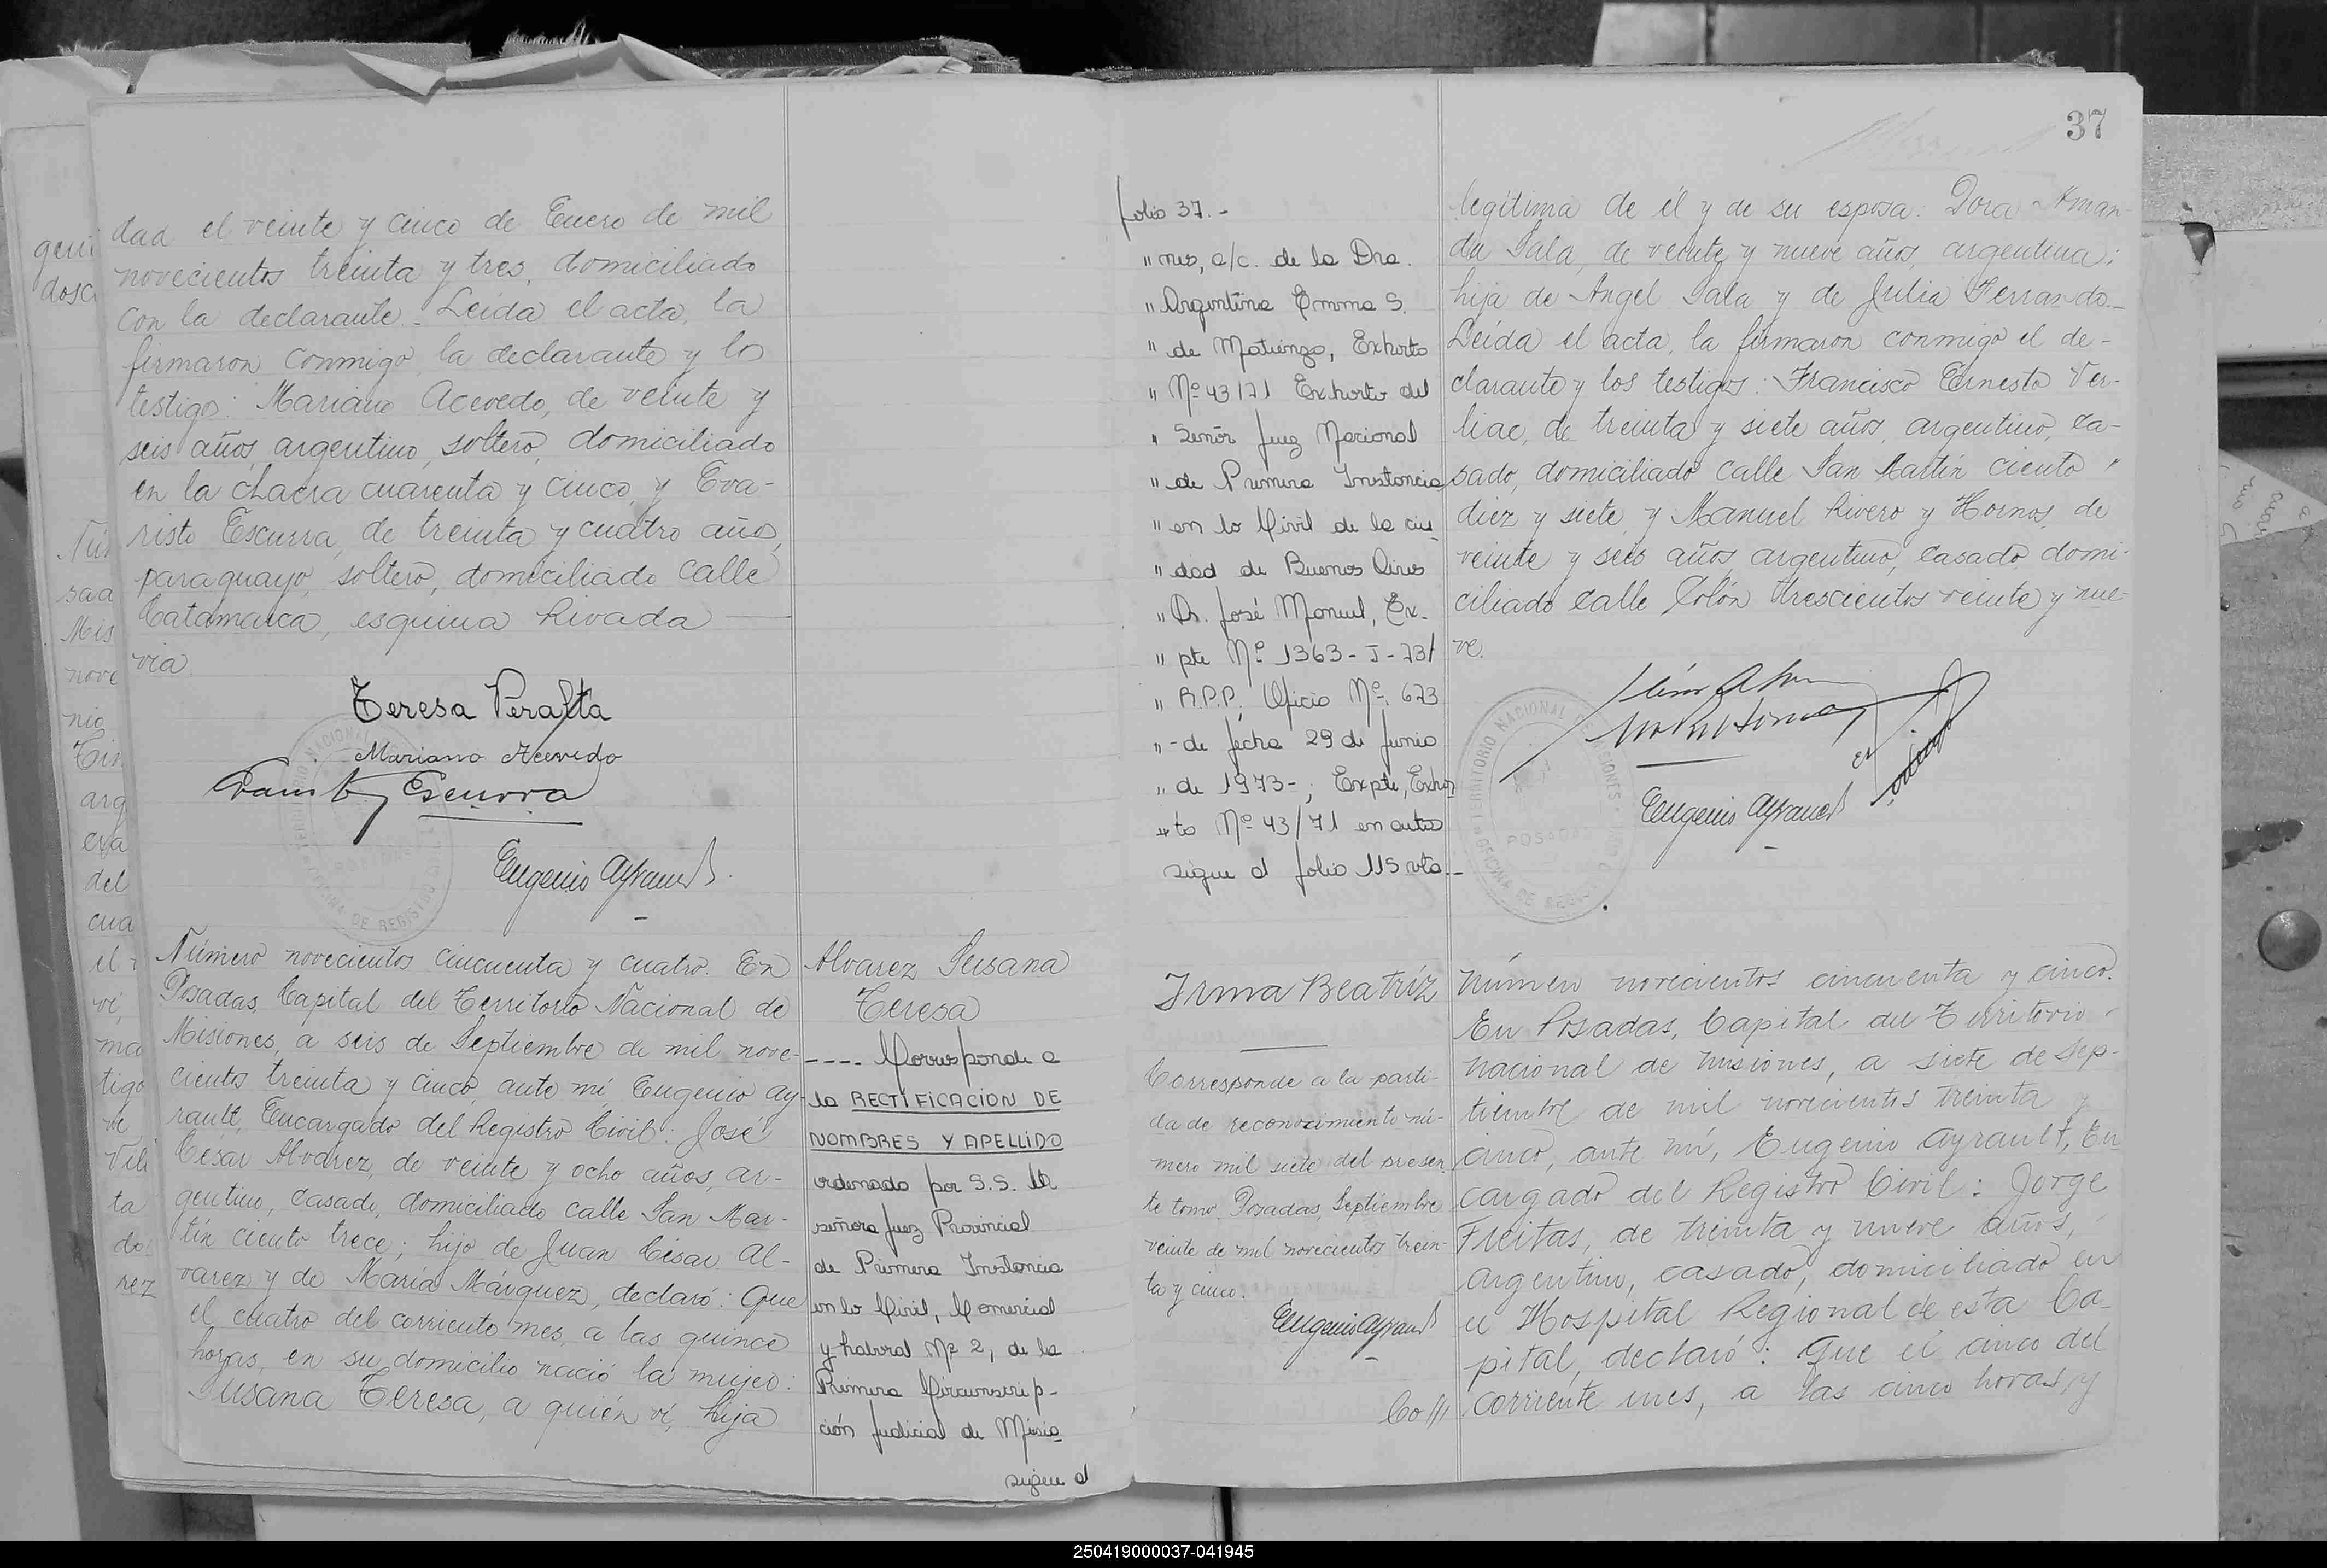 dad el veinte y cinco de Enero de mil
novecientos treinta y tres, domiciliado
con la declarante. Leída el acta, la
firmaron conmigo, la declarante y lo
testigos: Mariano Acevedo, de veinte y
seis años, argentino, soltero, domiciliado
en la chacra cuarenta y cinco, y Eva-
risto Escurra, de treinta y cuatro años,
paraguayo, soltero, domiciliado calle
Catamarca, esquina Rivada
via.
Teresa Peralta
Mariano Acevedo
Eugenio Ayrault
Número novecientos cincuenta y cuatro. En
Posadas, Capital del Territorio Nacional de
Misiones, a seis de Septiembre de mil nove-
cientos treinta y cinco, ante mí Eugenio Ay-
rault, Encargado del Registro Civil: José
César Alvarez, de veinte y ocho años, ar-
gentino, casado, domiciliado calle San Mar-
tín ciento trece; hijo de Juan César Al-
varez y de María Márquez, declaró: Que
el cuatro del corriente mes, a las quince
horas, en su domicilio nació la mujer:
Susana Teresa, a quién ví, hija
Alvarez Susana
Teresa
---- Corresponde a
la RECTIFICACION DE
NOMBRES Y APELLIDO
ordenada por S.S. la
señora Juez Provincial
de Primera Instancia
en lo Civil, Comercial
y Laboral Nº 2, de la
Primera Circunscrip-
ción Judicial de Misio
sigue al
37
folio 37.-
" nes, a/c. de la Dra.
" Argentina Emma S.
" de Matienzo, Exhorto
" Nº 43/71 Exhorto del
" Señor Juez Nacional
" de Primera Instancia
" en lo Civil de la ciu
" dad de Buenos Aires
" Dr. José Manuel, Ex.
" pte Nº 1363-J-73/
" R.P.P., Oficio Nº 673
"- de fecha 29 de Junio
" de 1973-; Expte, Exhor
" to Nº 43/71 en autos
sigue al folio 115 vta.-
legítima de él y de su esposa: Dora Aman-
da Sala, de veinte y nueve años, argentina;
hija de Angel Sala y de Julia Ferrando.-
Leída el acta, la firmaron conmigo el de-
clarante y los testigos: Francisco Ernesto Ver-
liac, de treinta y siete años, argentino, ca-
sado, domiciliado calle San Martín ciento "
diez y siete, y Manuel Rivero y Hornos, de
veinte y seis años, argentino, casado, domi-
ciliado calle Colón trescientos veinte y nue-
ve.
TERRITORIO NACIONAL DE MISIONES
POSADAS
OFICINA DE REGISTRO CIVIL
Eugenio Ayrault
Irma Beatríz
Corresponde a la parti-
da de reconocimiento nú-
mero mil siete del presen
te tomo. Posadas, Septiembre
veinte de mil novecientos trein-
ta y cinco.
Eugenio Ayrault
Co///
Número novecientos cincuenta y cinco.
En Posadas, Capital del Territorio
Nacional de Misiones, a siete de Sep-
tiembre de mil novecientos treinta y
cinco, ante mí, Eugenio Ayrault, En
cargado del Registro Civil: Jorge
Freitas, de treinta y nueve años,
argentino, casado, domiciliado en
el Hospital Regional de esta Ca-
pital, declaró: Que el cinco del
corriente mes, a las cinco horas, y
250419000037-041945